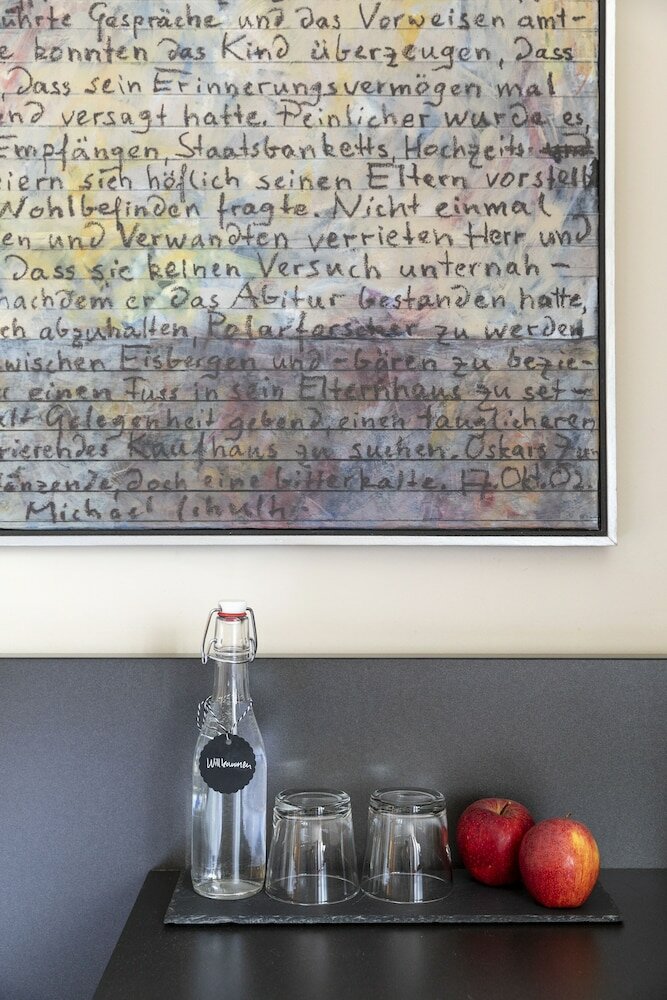 ührte Gespräche und das Vorweisen amt-
e konnten das Kind überzeugen, dass
, dass sein Erinnerungsvermögen mal
nd versagt hatte. Peinlicher wurde es,
Empfängen, Staatsbanketts, Hochzeits
eiern sich höflich seinen Eltern vorstell
Wohlbefinden fragte. Nicht einmal
en und Verwandten verrieten Herr und
Dass sie keinen Versuch unternah-
nachdem er das Abitur bestanden hatte,
ch abzuhalten, Polarforscher zu werden
wischen Eisbergen und -bären zu bezie-
r einen Fuss in sein Elternhaus zu set-
alt Gelegenheit gebend, einen tauglicheren
rierendes Kaufhaus zu suchen. Oskars Zu
länzende, doch eine bitterkalte. 17. Okt. 02.
Michael Schulh
Willkommen